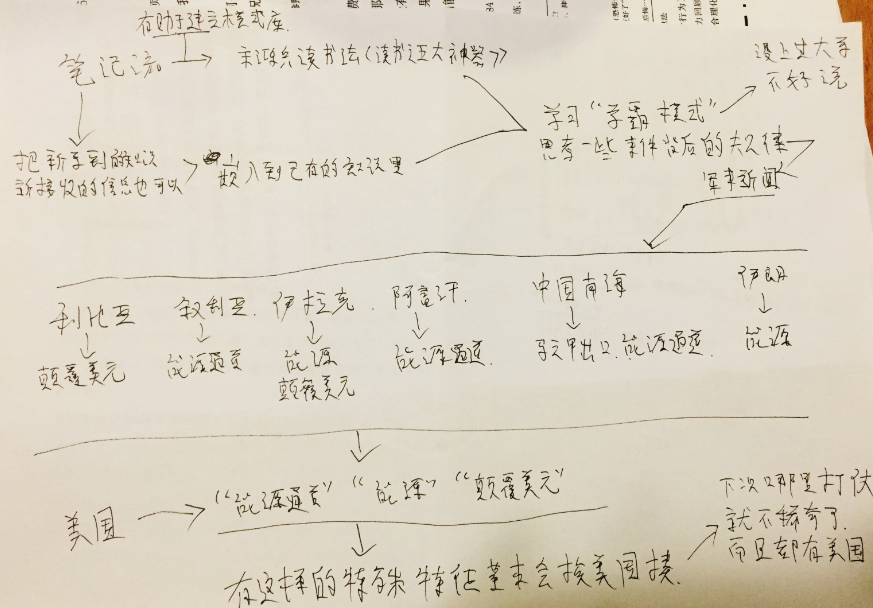 有助于建立模式库.
笔记流 → 宋鸿兵读书法(读书五大神器)
没上过大学
不好说
学习“学霸模式”
思考一些事件背后的大规律
把新学到的知识
新接收的信息也可以
嵌入到已存在的知识里
军事新闻
利比亚 叙利亚. 伊拉克 . 阿富汗. 中国南海 伊朗
颠覆美元 能源通道 能源 能源通道. 出口.能源通道. 能源
颠覆美元
美国 → “能源通道” “能源” “颠覆美元”
下次哪里打仗
就不稀奇了.
而且都有美国
有这样的特殊特征基本会挨美国揍.